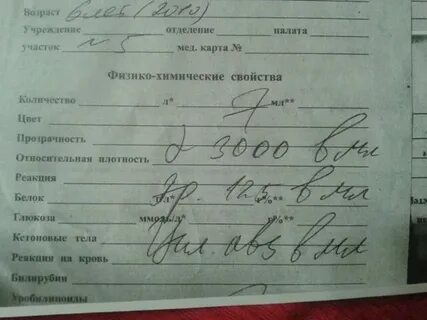 Возраст 6 лет (2010)
Учреждение отделение палата
участок №5 мед. карта №
Физико-химические свойства
Количество л* 7 мл**
Цвет
Прозрачность
Относительная плотность 3000 в мл
Реакция
Белок г/л* эр. 125 в мл г%**
Глюкоза ммоль/л* г%**
Кетоновые тела Цил. abs в мл
Реакция на кровь
Билирубин
Уробилиноиды